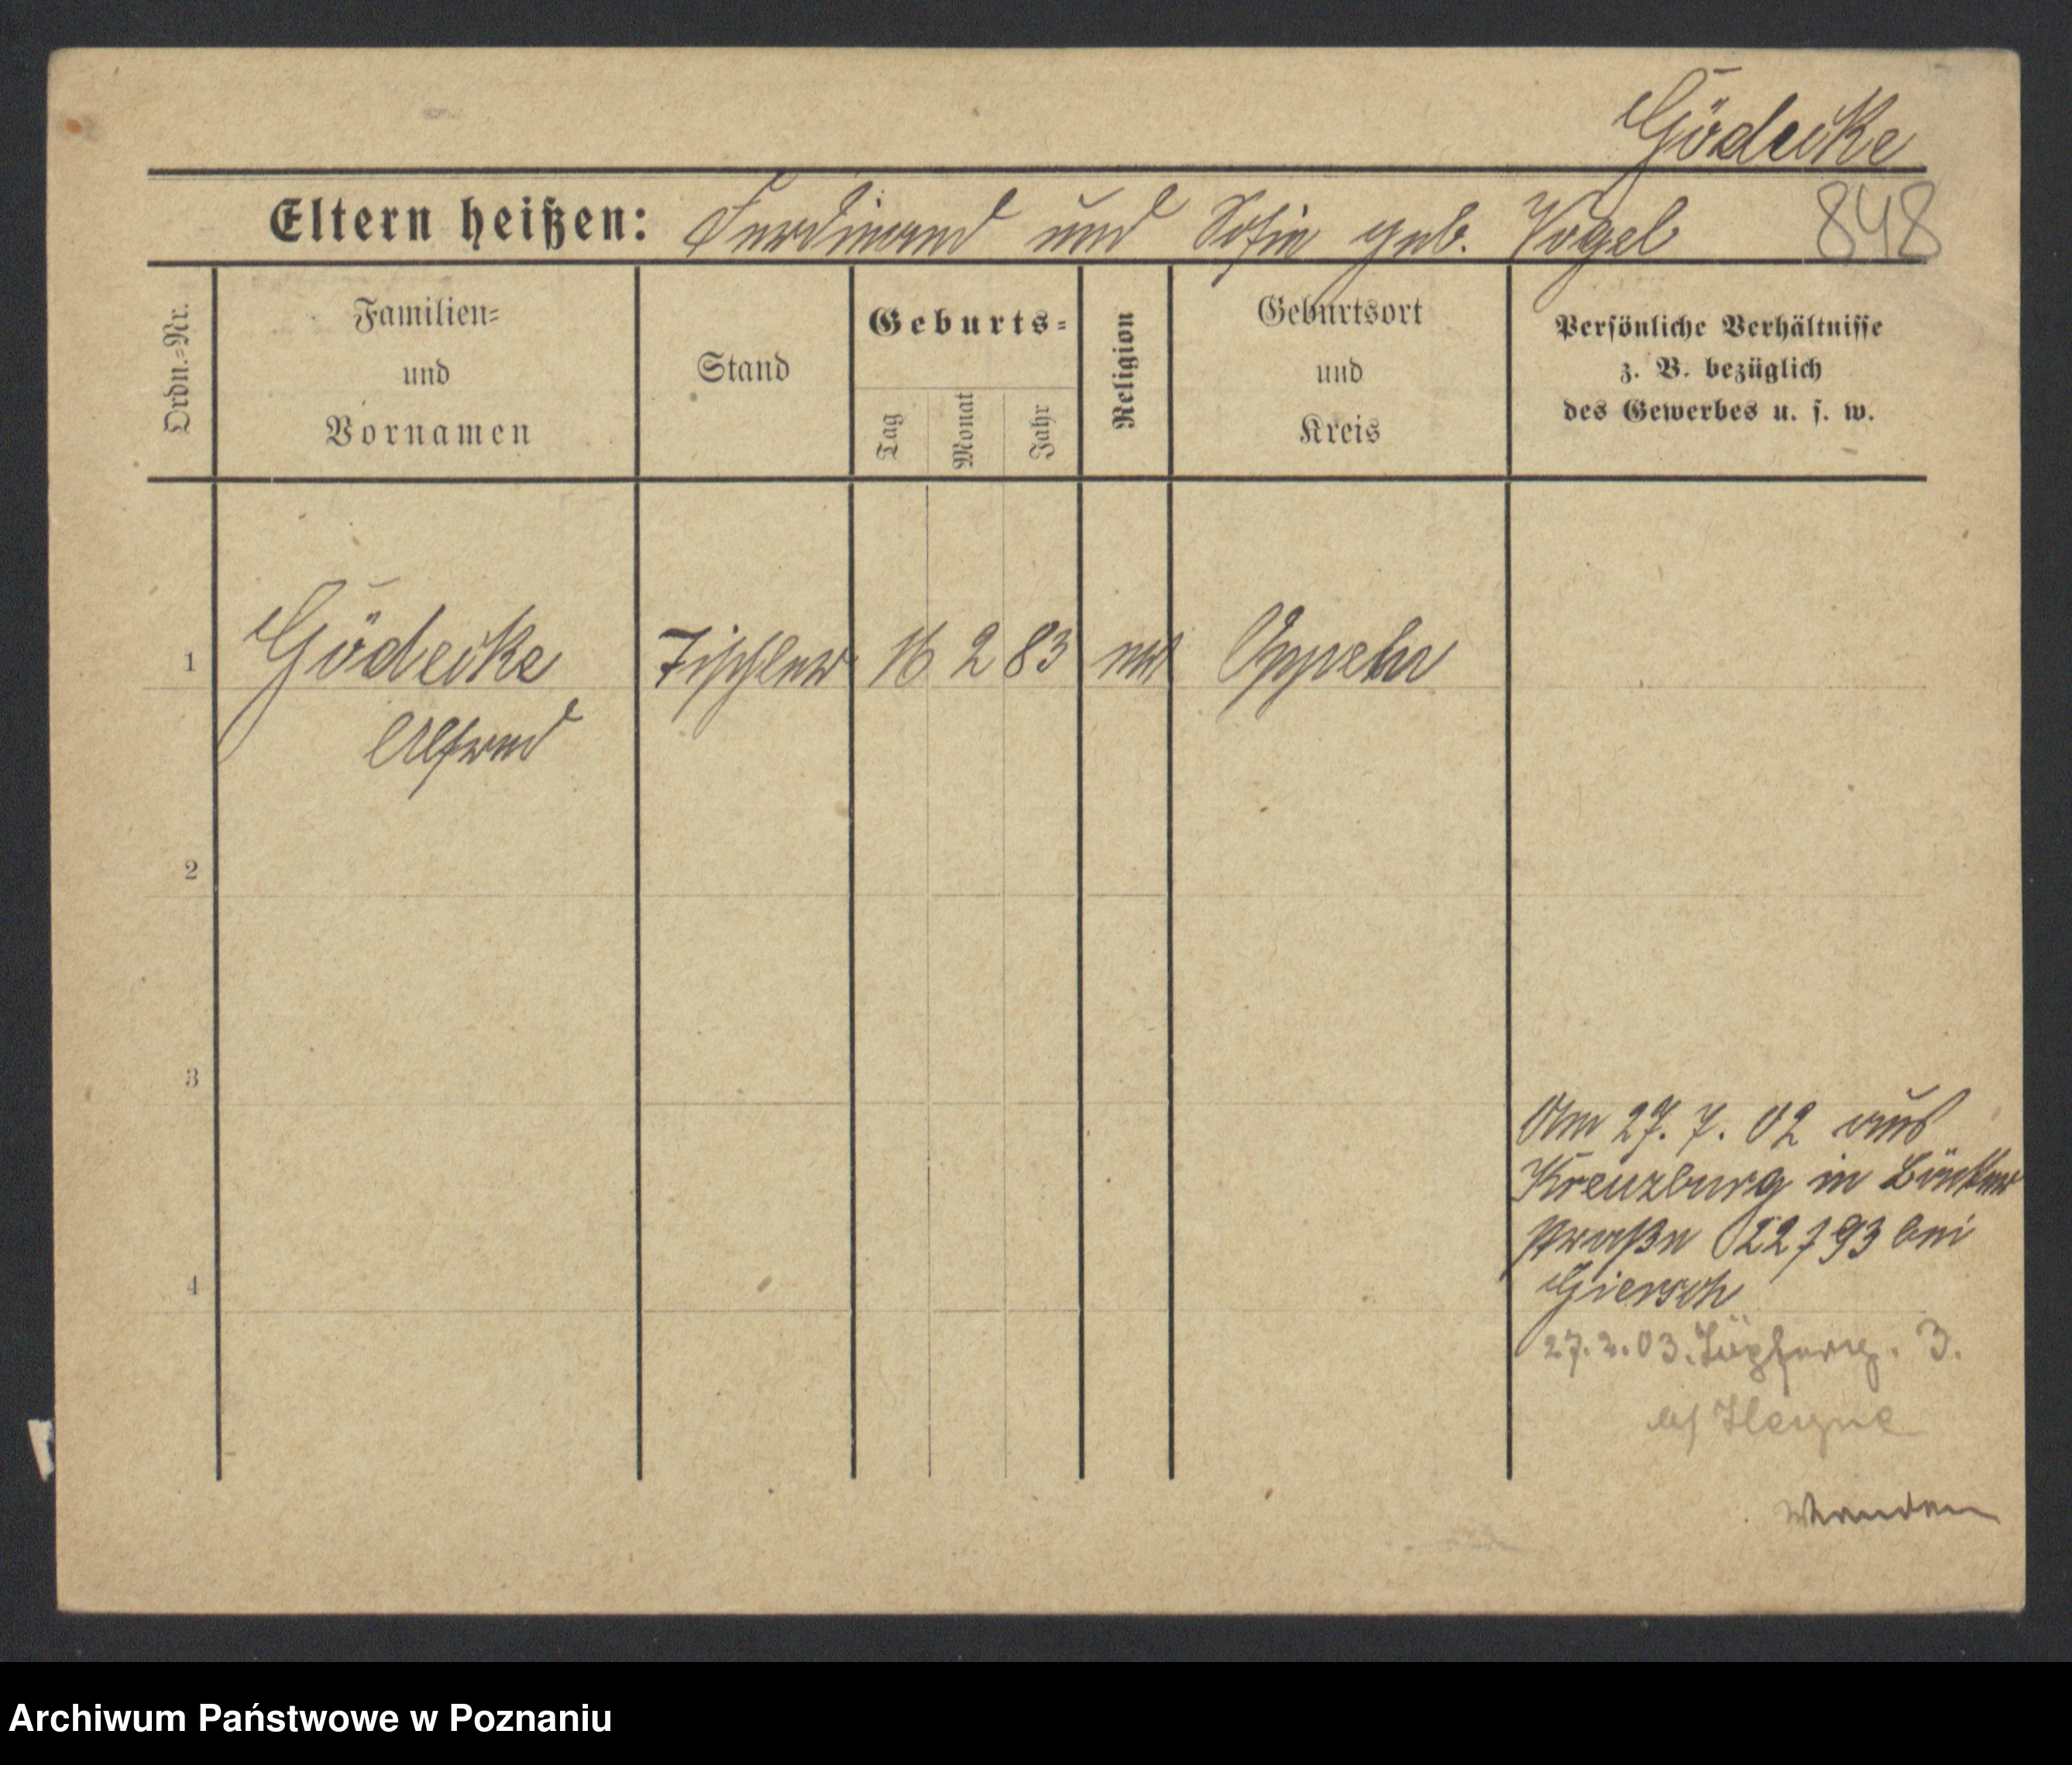 Gödecke
Eltern heißen: Ferdinand und Sofie geb. Vogel 848
Ordn.=Nr.
Familien=
und
Vornamen
Stand
Geburts=
Tag
Monat
Jahr
Religion
Geburtsort
und
Kreis
Persönliche Verhältnisse
z. B. bezüglich
des Gewerbes u. s. w.
1 Gödecke Tischler 16 2 83
Alfred
2
3
4
Am 27. 7. 02 aus
Kreuzburg in Bäcker
straße bei
Giersch
27. 2. 03. 3.
b/ Heyne
Wenden
Archiwum Państwowe w Poznaniu